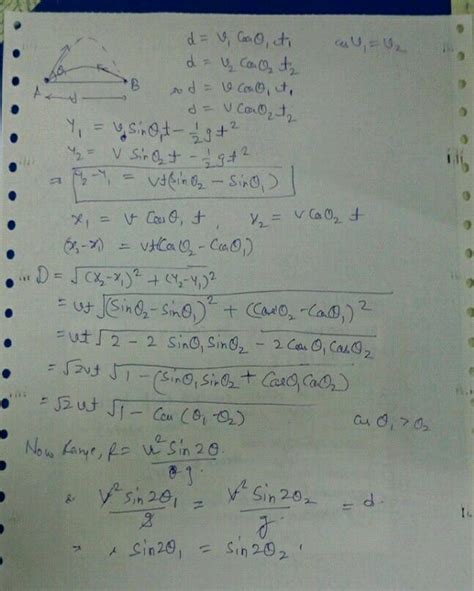 d = v₁ Cosθ₁ t₁   as v₁ = v₂
d = v₂ Cosθ₂ t₂
θ₁
A B
d
d = v Cosθ₁ t₁
d = v Cosθ₂ t₂
Y₁ = v Sinθ₁t - 1/2 gt²
Y₂ = v Sinθ₂t - 1/2 gt²
⇒ Y₂-Y₁ = vt(Sinθ₂ - Sinθ₁)
x₁ = v Cosθ₁ t , x₂ = v Cosθ₂ t
(x₂-x₁) = vt(Cosθ₂ - Cosθ₁)
D = √(x₂-x₁)² + (Y₂-Y₁)²
= vt √(Sinθ₂-Sinθ₁)² + (Cosθ₂-Cosθ₁)²
= vt √2 - 2 Sinθ₁Sinθ₂ - 2Cosθ₁Cosθ₂
= √2vt √1-(Sinθ₁Sinθ₂ + Cosθ₁Cosθ₂)
= √2 vt √1 - Cos (θ₁-θ₂)   as θ₁ > θ₂
Now Range, R = v² Sin 2θ / g
v² Sin 2θ₁ / g = v² Sin 2θ₂ / g = d
Sin2θ₁ = Sin2θ₂